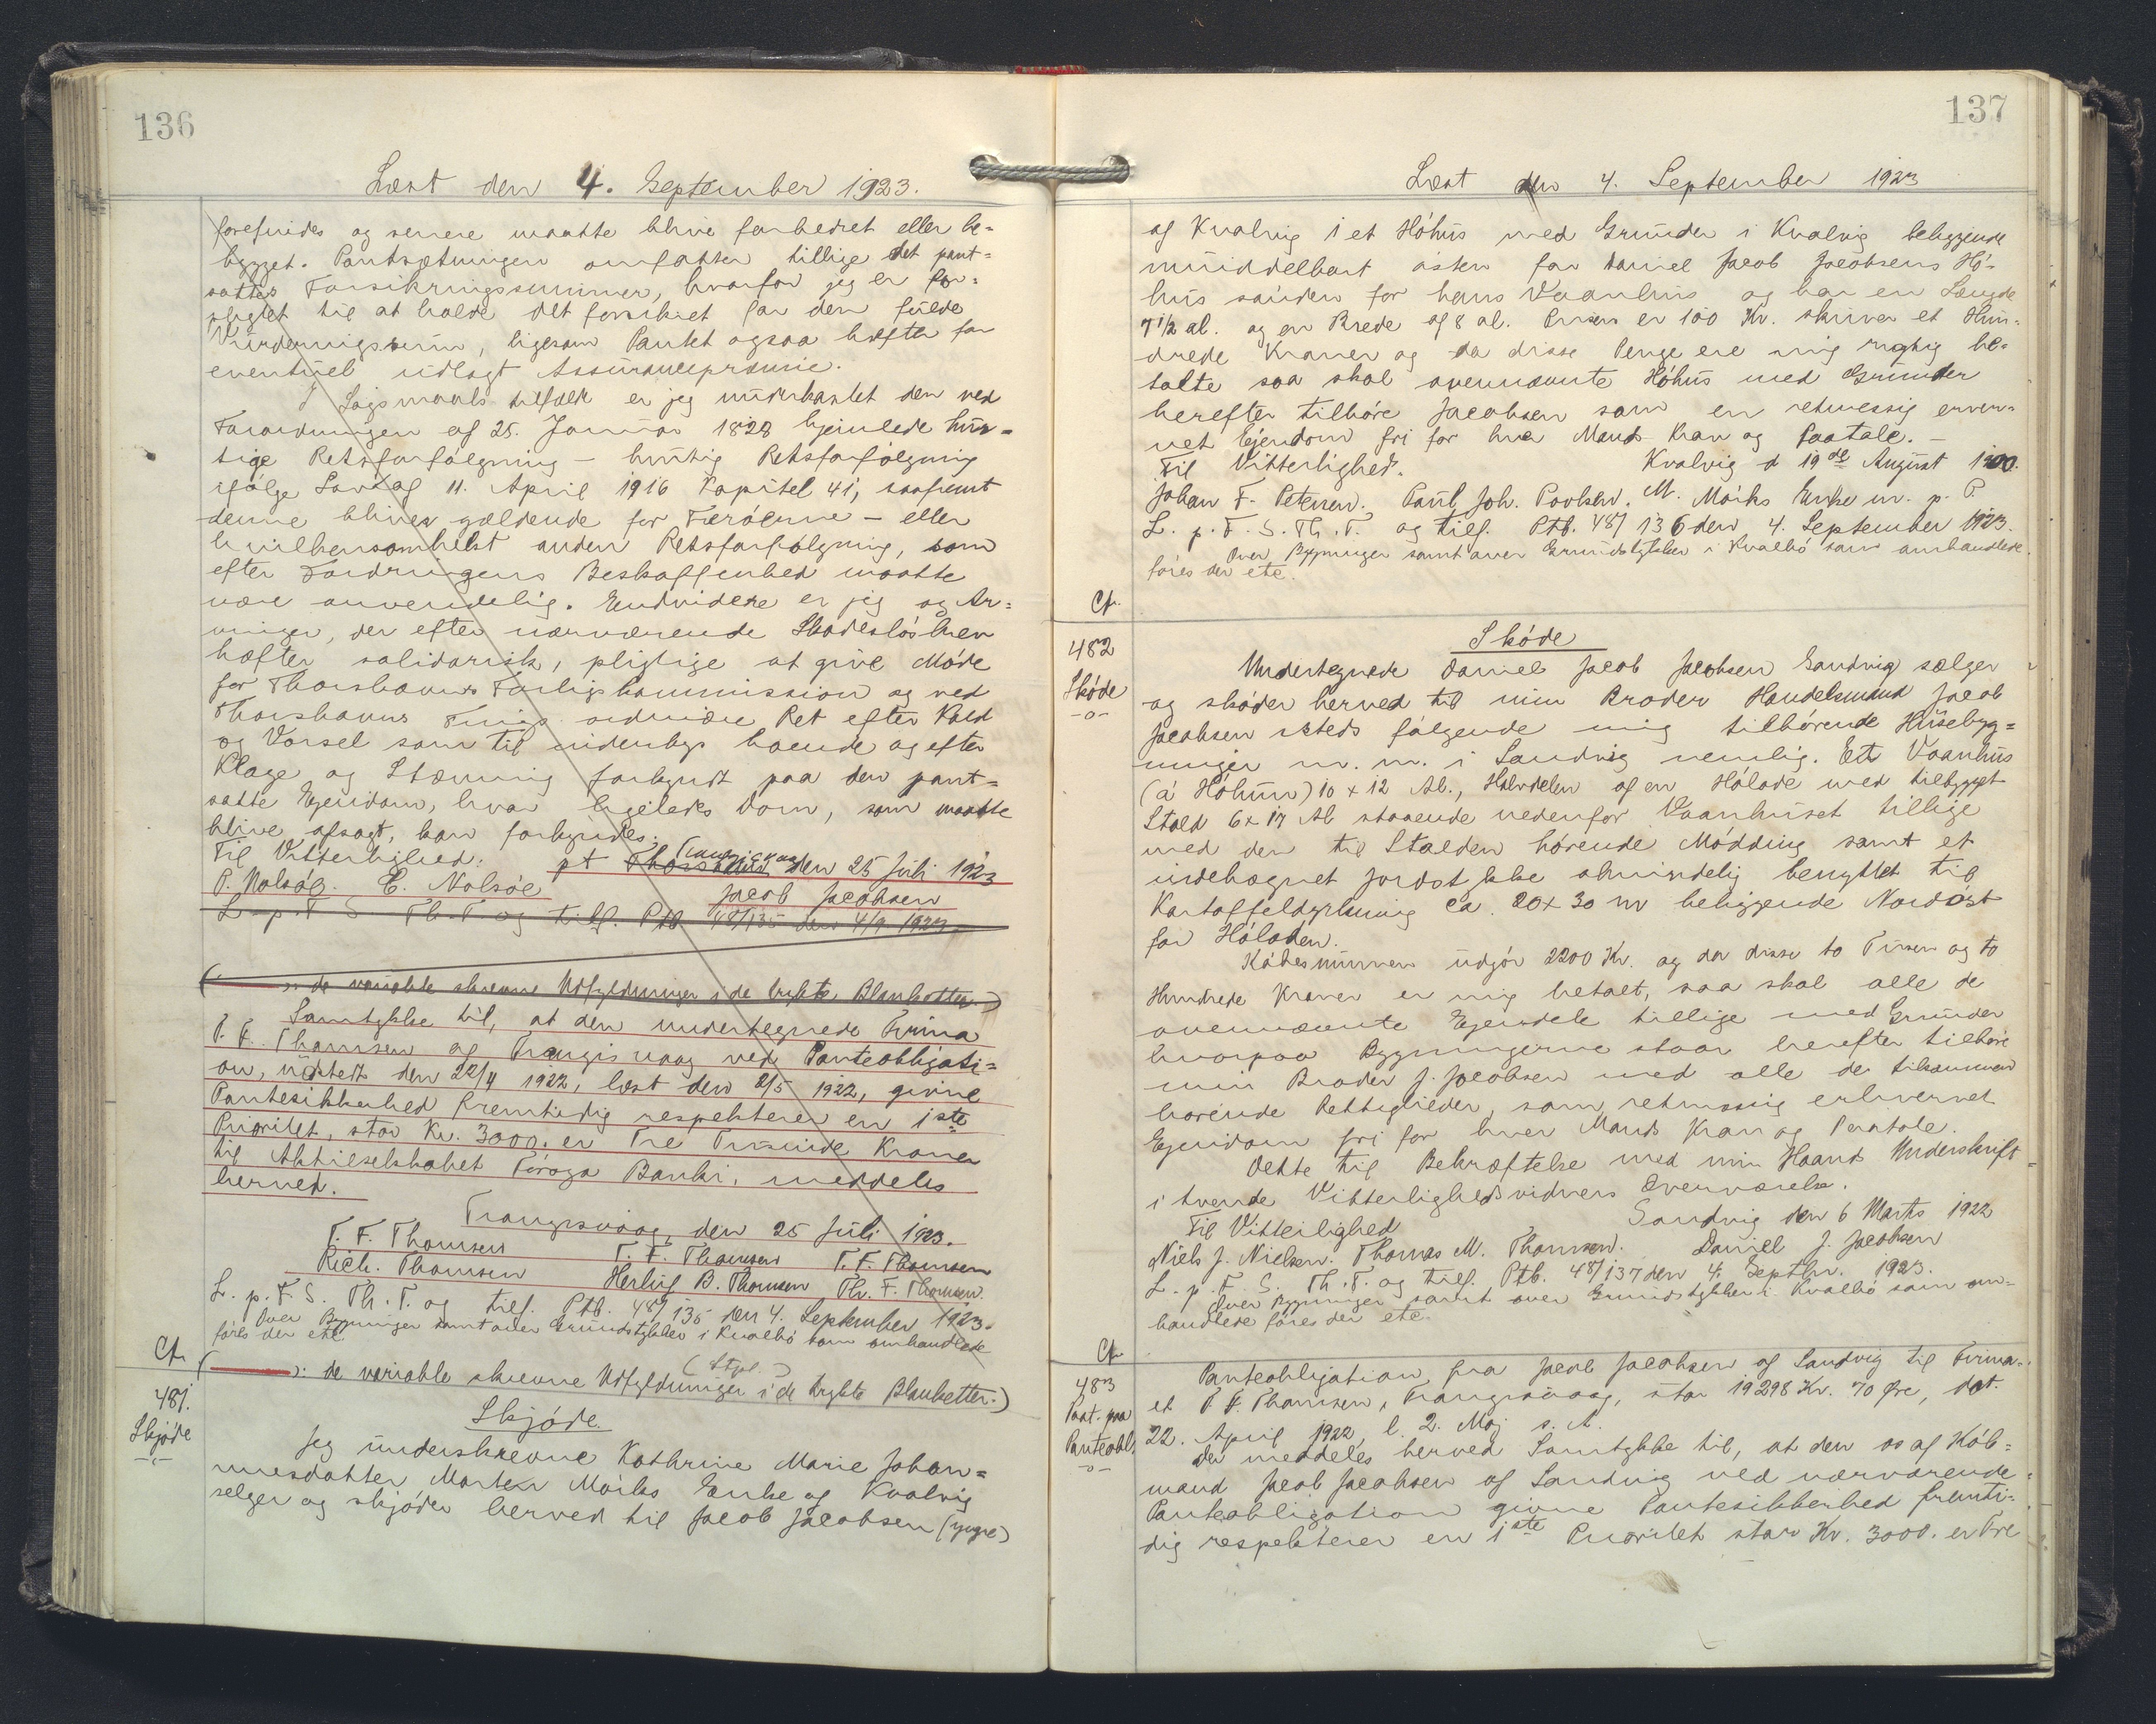 136
Læst den 4. September 1923.
forefindes og senere maatte blive forbedret eller be=
bygget. Pantsætningen omfatter tillige det pant=
sattes Forsikringssummer, hvorfor jeg er for=
pligtet til at holde det forsikret for den fulde
Vurderingssum, ligesom Pantet ogsaa hæfter for
eventuel udlagt Assurancepræmie.
I Søgsmaals tilfælde er jeg underkastet den ved
Forordningen af 25. Januar 1828 hjemlede hur=
tige Retsforfølgning - hurtig Retsforfølgning
ifølge Lov af 11. April 1916 Kapitel 41, saafremt
denne bliver gældende for Færøerne - eller
hvilkensomhelst anden Retsforfølgning, som
efter Fordringens Beskaffenhed maatte
være anvendelig. Endvidere er jeg og Ar=
vinger, der efter nærværende Skadesløsbrev
hæfter solidarisk, pligtige at give Møde
for Thorshavns Forligskommission og ved
Thorshavns Tings ordinære Ret efter Kald
og Varsel som til indenbys boende og efter
Klage og Stævning forkyndt paa den pant=
satte Ejendom, hvor ligeledes Dom, som maatte
blive afsagt, kan forkyndes.
Til Vitterlighed: pt Thorshavn (Trangisvaag den 25 Juli 1923
P. Nolsøe. E. Nolsøe Jacob Jacobsen
L. p. F. S. Th. T. og tilf. Ptb 48/135 den 4/9 1923.
( ): de variable skrevne Udfyldninger i de trykte Blanketter.)
Samtykke til, at den undertegnede Firma
T. F. Thomsen af Trangisvaag ved Panteobligati=
on, udstedt den 22/4 1922, læst den 2/5 1922, givne
Pantesikkerhed fremtidig respekterer en 1ste
Prioritet, stor Kr. 3000. er Tre Tusinde Kroner
til Aktieselskabet Føroya Banki, meddeles
herved.
Trangisvaag, den 25 Juli 1923.
T. F. Thomsen T. F. Thomsen T. F. Thomsen
Rich. Thomsen Herluf B. Thomsen Th. F. Thomsen.
L. p. F. S. Th. T. og tilf. Ptb. 48/135 den 4. September 1923.
Over Bygninger samt over Grundstykker i Kvalbø som omhandlede
føres der etc.
Cf.
( ): de variable skrevne Udfyldninger i de trykte Blanketter.)
(Stpl.)
481.
Skjøde
-"-
Skjøde.
Jeg underskrevne Kathrine Marie Johan=
nesdatter Morten Mørks Enke af Kvalvig
selger og skjøder herved til Jacob Jacobsen (yngre)
137
Læst den 4. September 1923
af Kvalvig 1 et Høhus med Grunden i Kvalvig beliggende
umiddelbart østen for Daniel Jacob Jacobsens Hø-
hus sønden for hans Vaanhus og har en Længde
7 1/2 al. og en Brede af 8 al. Prisen er 100 Kr. skriver et Hun=
drede Kroner og da disse Penge ere mig rigtig be=
talte saa skal ovennævnte Høhus med Grunden
herefter tilhøre Jacobsen som en retmessig erver=
vet Ejendom fri for hver Mands Krav og Paatale. -
Til Vitterlighed. Kvalvig d 19de August 1900.
Johan F. Petersen. Paul Joh. Poulsen. M. Mørks Enke m. p. P.
L. p. F. S. Th. T. og tilf. Ptb. 48/136 den 4. September 1923.
Over Bygninger samt over Grundstykker i Kvalbø som omhandlede
føres der etc.
Cf.
482
Skøde
-o-
Skøde
Undertegnede Daniel Jacob Jacobsen Sandvig sælger
og skøder herved til min Broder Handelsmand Jacob
Jacobsen steds følgende mig tilhørende Husebyg=
ninger m. m. i Sandvig nemlig. Et Vaanhus
(á Høhun) 10 x 12 Al., Halvdelen af en Hølade med tilbygget
Stald 6 x 17 Al staaende nedenfor Vaanhuset tillige
med den til Stalden hørende Mødding samt et
indehegnet Jordstykke almindelig benyttet til
Kartoffeldyrkning ca. 20 x 30 m beliggende Nordøst
for Høladen.
Købesummen udgør 2200 Kr. og da disse to Tusen og to
Hundrede Kroner er mig betalt, saa skal alle de
ovennævnte Ejendele tillige med Grunden
hvorpaa Bygningerne staar herefter tilhøre
min Broder J. Jacobsen med alle de tilsammen
hørende Rettigheder, som retmessig erhvervet
Ejendom fri for hver Mands Krav og Paatale.
Dette til Bekræftelse med min Haands Underskrift
i tvende Vitterlighedsvidners Overværelse.
Til Vitterlighed Sandvig den 6 Marts 1922
Niels J. Nielsen. Thomas M. Thomsen. Daniel J. Jacobsen
L. p. F. S. Th. T. og tilf. Ptb. 48/137 den 4. Septbr. 1923.
Over Bygninger samt over Grundstykker i Kvalbø som om=
handlede føres der etc.
Cf.
483
Paat. paa
Panteobl.
-o-
Panteobligation fra Jacob Jacobsen af Sandvig til Firma=
et T. F. Thomsen, Trangisvaag, stor 19298 Kr. 70 Øre, dat.
22. April 1922, l. 2. Maj s. A.
Der meddeles herved Samtykke til, at den os af Køb=
mand Jacob Jacobsen af Sandvig ved nærværende
Panteobligation givne Pantesikkerhed fremti=
dig respekterer en 1ste Prioritet stor Kr. 3000. er Tre